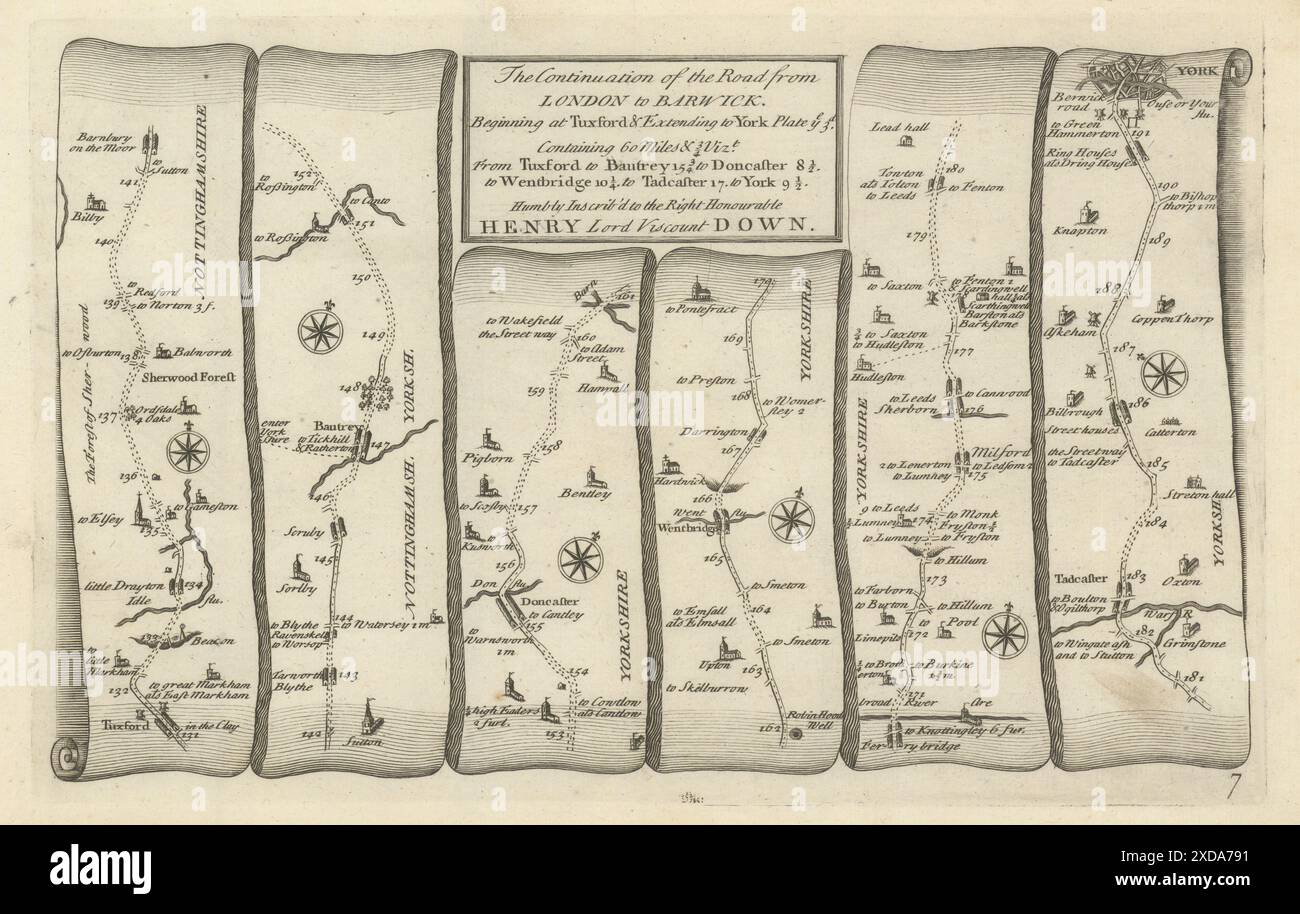 The Continuation of the Road from
LONDON to BARWICK.
Beginning at Tuxford & Extending to York Plate yᵉ 3ᵈ.
Containing 60 Miles & ¾ Vizᵗ.
From Tuxford to Bautrey 15¾ to Doncaster 8½.
to Wentbridge 10¼. to Tadcaster 17. to York 9½.
Humbly Inscrib'd to the Right Honourable
HENRY Lord Viscount DOWN.
Barnbury
on the Moor
Sutton
141
Bilby
140
NOTTINGHAMSHIRE
to
Redford
139
to Norton 3 f.
The Forest of Sherwood
to Osburton
138
Babworth
Sherwood Forest
Ordsdale
137
4 Oaks
136
to Gameston
to Elsey
135
little Drayton
134
Idle
flu.
133
Beacon
to
little
Markham
132
to great Markham
als East Markham
Tuxford
in the Clay
131
152
to
Roßington
to Canto
151
to Roßington
150
149
148
YORKSH.
enter
York
Shire
Bautrey
to Tickhill
& Ratherton
147
146
Scruby
145
Sorlby
NOTTINGHAMSH.
144
to Blythe
Ravenskell
to Worsop
to Watersey 1 m
Tarnworth
Blythe
143
142
Sutton
Barn
161
to Wakefield
the Street way
160
to Adam
Street
159
Hampall
158
Pigborn
Bentley
to Scosby
157
to
Kusworth
156
Don
flu
Doncaster
to Cantley
155
to
Warnsworth
1 m
YORKSHIRE
154
to Cowtlow
als Cantlow
high Eaders
2 furl.
153
170
to Pontefract
YORKSHIRE
169
to Preston
168
to Womer-
sley 2
Darrington
167
Hardwick
166
Went
flu
Wentbridge
165
to Smeton
164
to Emsall
als Elmsall
to Smeton
Upton
163
to Skelburrow
162
Robin Hood
Well
Lead hall
180
Towton
als Tolton
to Leeds
to Fenton
179
to Fenton 1
to Saxton
& Hardingwell
hall ½ als
Scarthingwell
Barston als
Barkstone
½
to Saxton
to Hudleston
177
Hudleston
to Leeds
Sherborn
to Cannwood
176
Milford
2 to Lenerton
to Ledsom 2
to Lumhey
175
YORKSHIRE
9 to Leeds
½ Lumney
174
to Monk
Fryston ½
to Lumney
to Fryston
to Hillum
173
to Farborn
to Burton
to Hillum
to Pool
172
Limepits
½ to Brot-
erton
to Burkine
1½ m
171
broad
River
Are
to Knottingley 6 fur.
Ferrybridge
YORK
Berwick
road
Ouse or Your
flu.
to Green
Hammerton
191
Ring Houses
als Dring Houses
190
to Bishop
thorp 1 m
Knapton
189
188
Coppen Thorp
Askeham
187
186
Bilbrough
Street houses
Catterton
the Street way
to Tadcaster
185
Streton hall
184
YORKSHIRE
Oxton
Tadcaster
183
to Boulton
& Ogilthorp
Warf R
182
Grimstone
to Wingate ash
and to Stutton
181
7
alamy
Image ID: 2XDA791
www.alamy.com